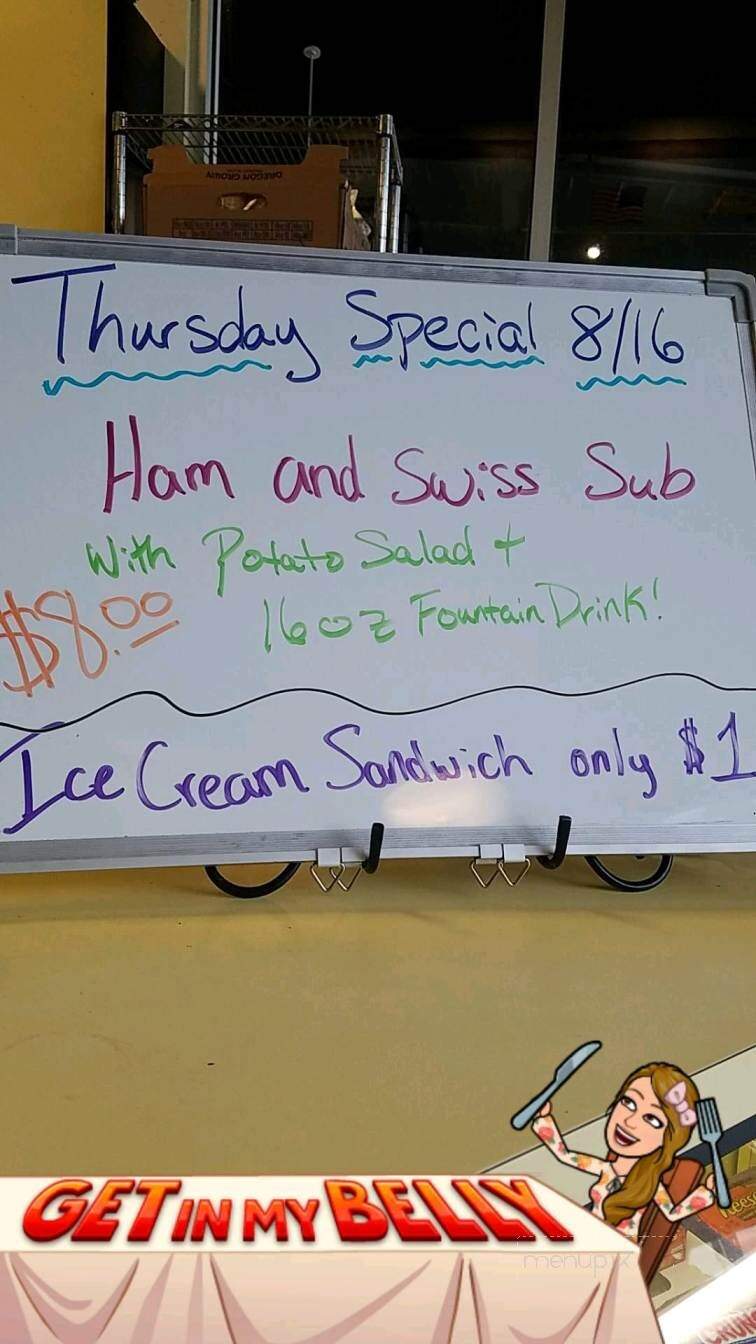 OREGON GROWN
Thursday Special 8/16
Ham and Swiss Sub
With Potato Salad +
$8.00
16oz Fountain Drink!
Ice Cream Sandwich only $1
GET IN MY BELLY
Reese
menupix